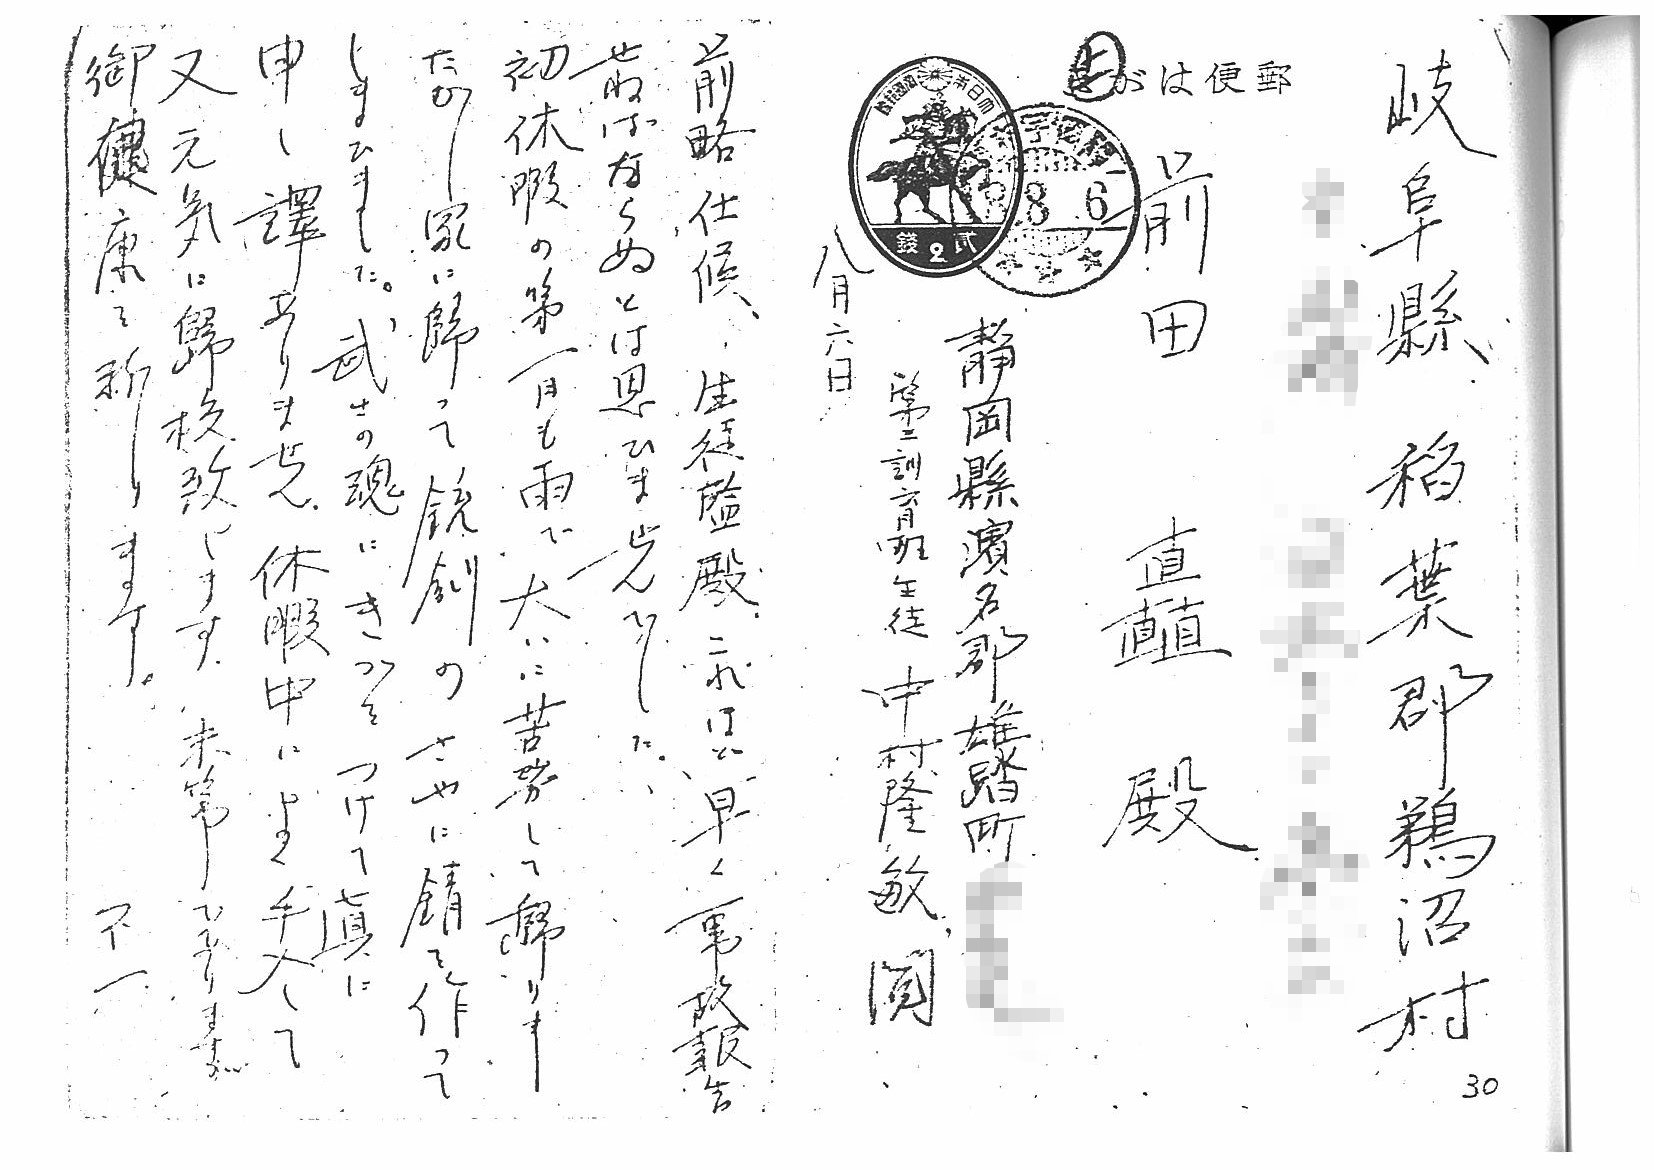 岐阜縣稲葉郡鵜沼村
郵便はがき
大日本帝國郵便
貳錢
2
8 6
前田直矗殿
靜岡縣濱名郡雄踏町
第二訓育班生徒 中村隆敏
八月六日
前略仕候、生徒監殿、これほど早く事故報告
せねばならぬとは思ひませんでした。
初休暇の第一日も雨で大いに苦勞して歸りま
したがし家に歸って銃劍のさやに錆を作って
しまひました。武さの魂にきづをつけて眞に
申し譯ありません。休暇中によく手入して
又元気に歸校致します。末筆でありますが
御健康を祈ります。 不一
30